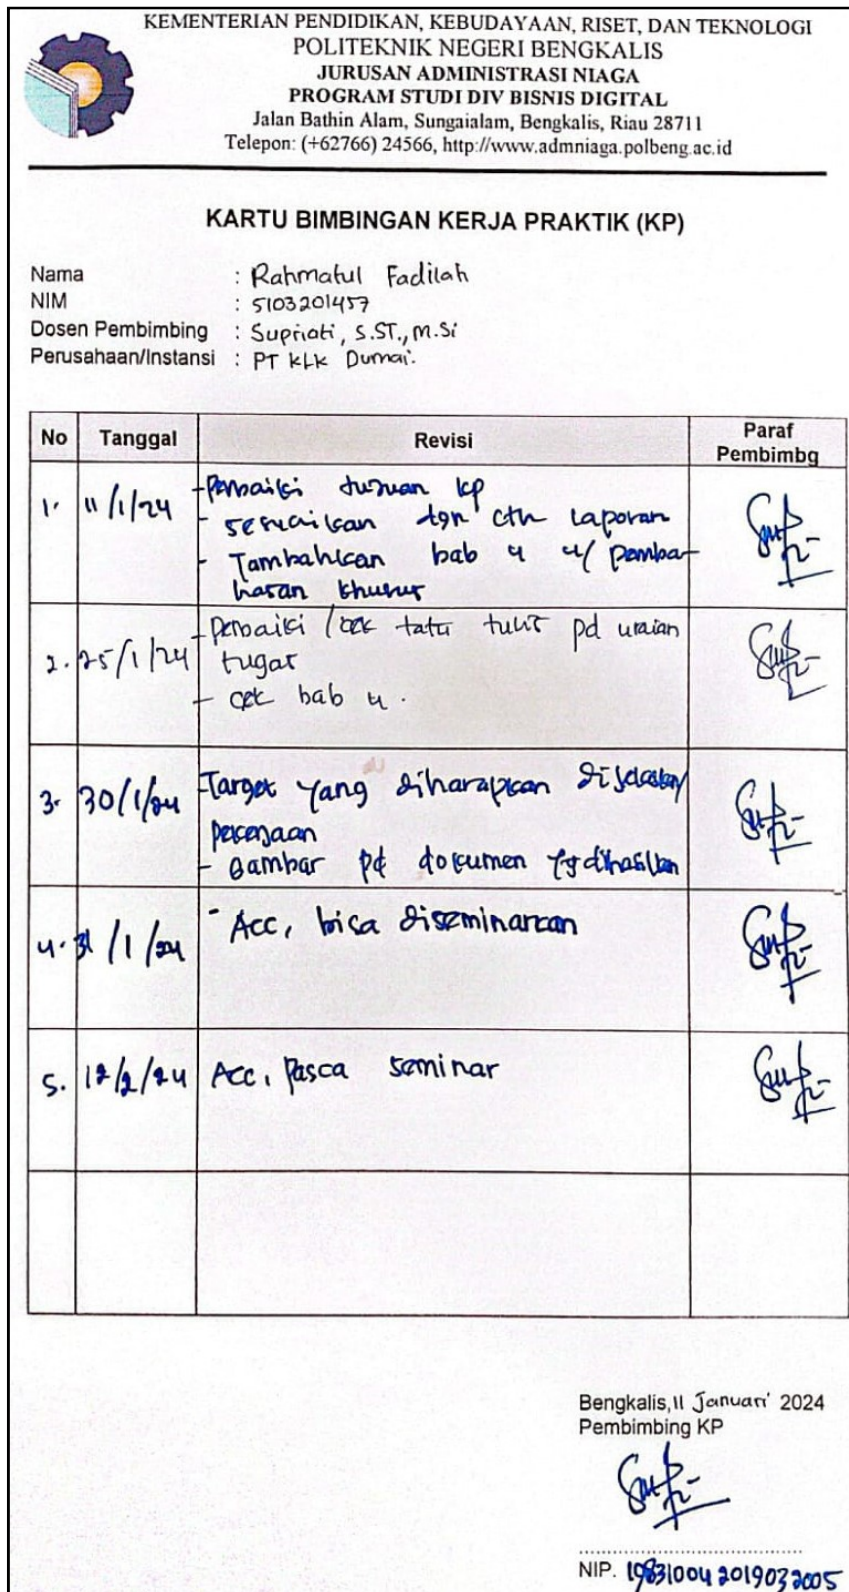 KEMENTERIAN PENDIDIKAN, KEBUDAYAAN, RISET, DAN TEKNOLOGI
POLITEKNIK NEGERI BENGKALIS
JURUSAN ADMINISTRASI NIAGA
PROGRAM STUDI DIV BISNIS DIGITAL
Jalan Bathin Alam, Sungaialam, Bengkalis, Riau 28711
Telepon: (+62766) 24566, http://www.admniaga.polbeng.ac.id
KARTU BIMBINGAN KERJA PRAKTIK (KP)
Nama : Rahmatul Fadilah
NIM : 5103201457
Dosen Pembimbing : Supriati, S.ST., M.Si
Perusahaan/Instansi : PT KLK Dumai.
No Tanggal Revisi Paraf
Pembimbg
1. 11/1/24 - Perbaiki tujuan kp
- sesuaikan dgn cth laporan
- Tambahkan bab 4 u/ pemba-
hasan khusus
2. 25/1/24 - perbaiki / cek tata tulis pd uraian
tugas
- cek bab 4.
3. 30/1/24 - Target yang diharapkan
pekerjaan
- Gambar pd dokumen yg dihasilkan
4. 31/1/24 - Acc, bisa diseminarkan
5. 12/2/24 Acc, Pasca seminar
Bengkalis, 11 Januari 2024
Pembimbing KP
NIP. 198310042019032005